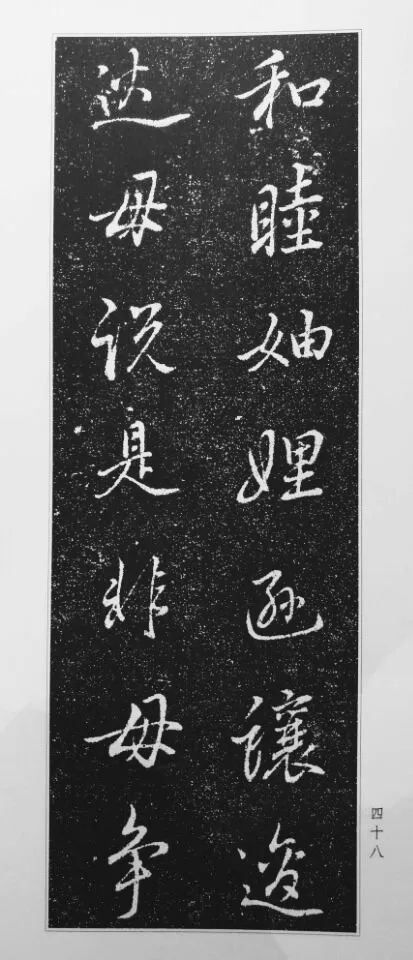 和睦妯娌遜讓逡
毋説是非毋争
四十八